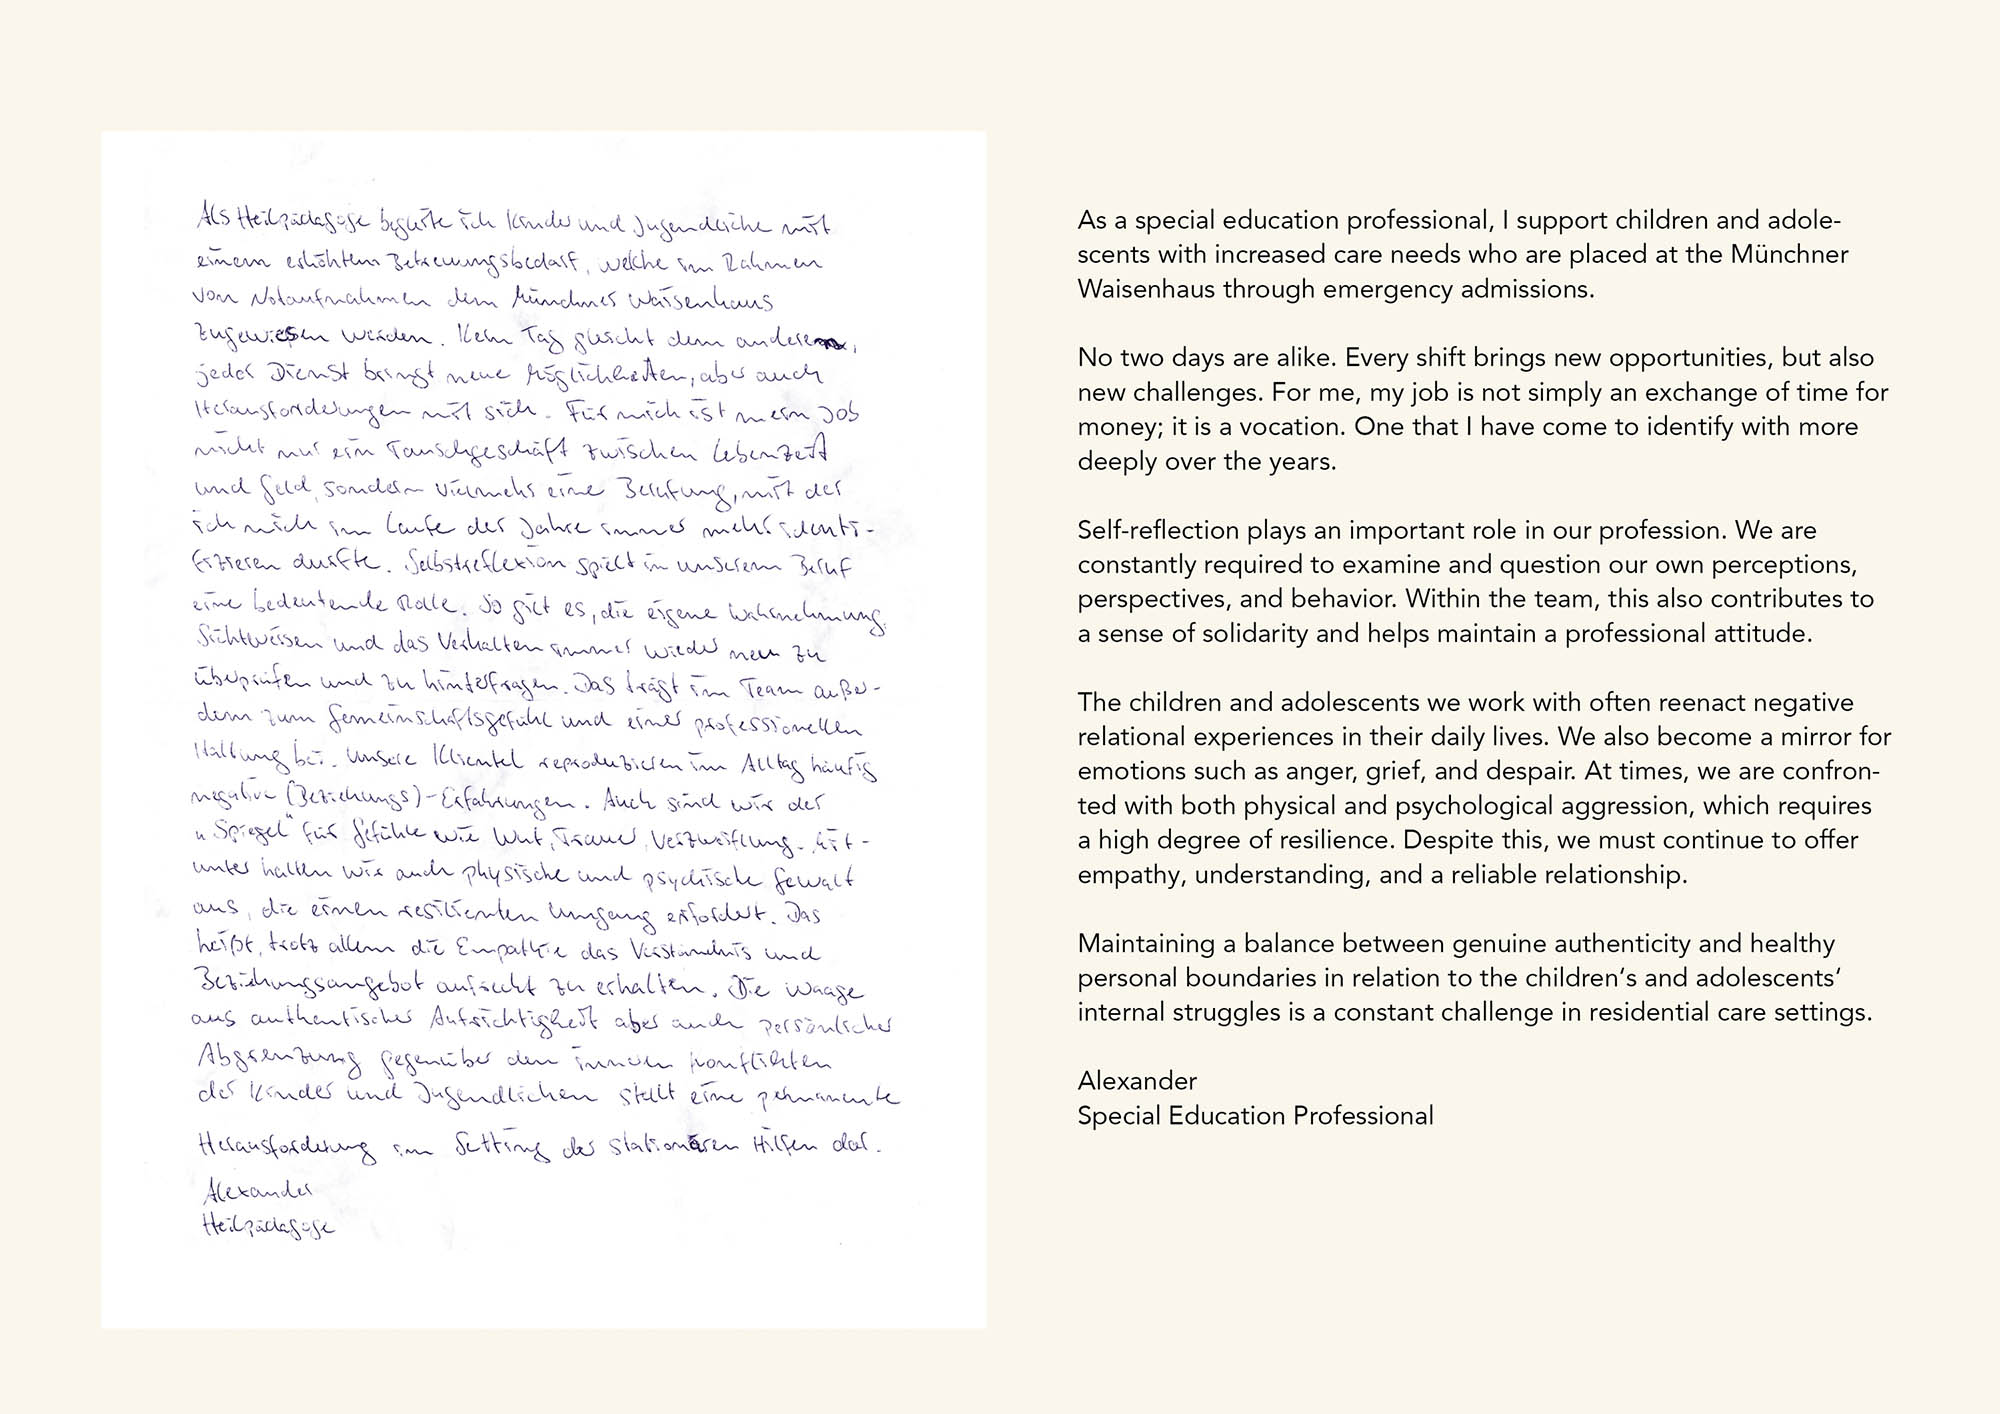 Als Heilpädagoge begleite ich Kinder und Jugendliche mit
einem erhöhtem Betreuungsbedarf, welche im Rahmen
von Notaufnahmen dem Münchner Waisenhaus
zugewiesen werden. Kein Tag gleicht dem anderen,
jeder Dienst bringt neue Möglichkeiten, aber auch
Herausforderungen mit sich. Für mich ist mein Job
nicht nur ein Tauschgeschäft zwischen Lebenzeit
und Geld, sondern vielmehr eine Berufung, mit der
ich mich im Laufe der Jahre immer mehr identi-
fizieren durfte. Selbstreflexion spielt in unserem Beruf
eine bedeutende Rolle. So gilt es, die eigene Wahrnehmung,
Sichtweisen und das Verhalten immer wieder neu zu
überprüfen und zu hinterfragen. Das trägt im Team außer-
dem zum Gemeinschaftsgefühl und einer professionellen
Haltung bei. Unsere Klientel reproduzieren im Alltag häufig
negative (Beziehungs)-Erfahrungen. Auch sind wir der
„Spiegel" für Gefühle wie Wut, Trauer, Verzweiflung. Mit-
unter halten wir auch physische und psychische Gewalt
aus, die einen resilienten Umgang erfordert. Das
heißt, trotz allem die Empathie das Verständnis und
Beziehungsangebot aufrecht zu erhalten. Die Waage
aus authentischer Aufrichtigkeit aber auch persönlicher
Abgrenzung gegenüber den inneren Konflikten
der Kinder und Jugendlichen stellt eine permanente
Herausforderung im Setting der stationären Hilfen dar.
Alexander
Heilpädagoge
As a special education professional, I support children and adole-
scents with increased care needs who are placed at the Münchner
Waisenhaus through emergency admissions.
No two days are alike. Every shift brings new opportunities, but also
new challenges. For me, my job is not simply an exchange of time for
money; it is a vocation. One that I have come to identify with more
deeply over the years.
Self-reflection plays an important role in our profession. We are
constantly required to examine and question our own perceptions,
perspectives, and behavior. Within the team, this also contributes to
a sense of solidarity and helps maintain a professional attitude.
The children and adolescents we work with often reenact negative
relational experiences in their daily lives. We also become a mirror for
emotions such as anger, grief, and despair. At times, we are confron-
ted with both physical and psychological aggression, which requires
a high degree of resilience. Despite this, we must continue to offer
empathy, understanding, and a reliable relationship.
Maintaining a balance between genuine authenticity and healthy
personal boundaries in relation to the children‘s and adolescents‘
internal struggles is a constant challenge in residential care settings.
Alexander
Special Education Professional